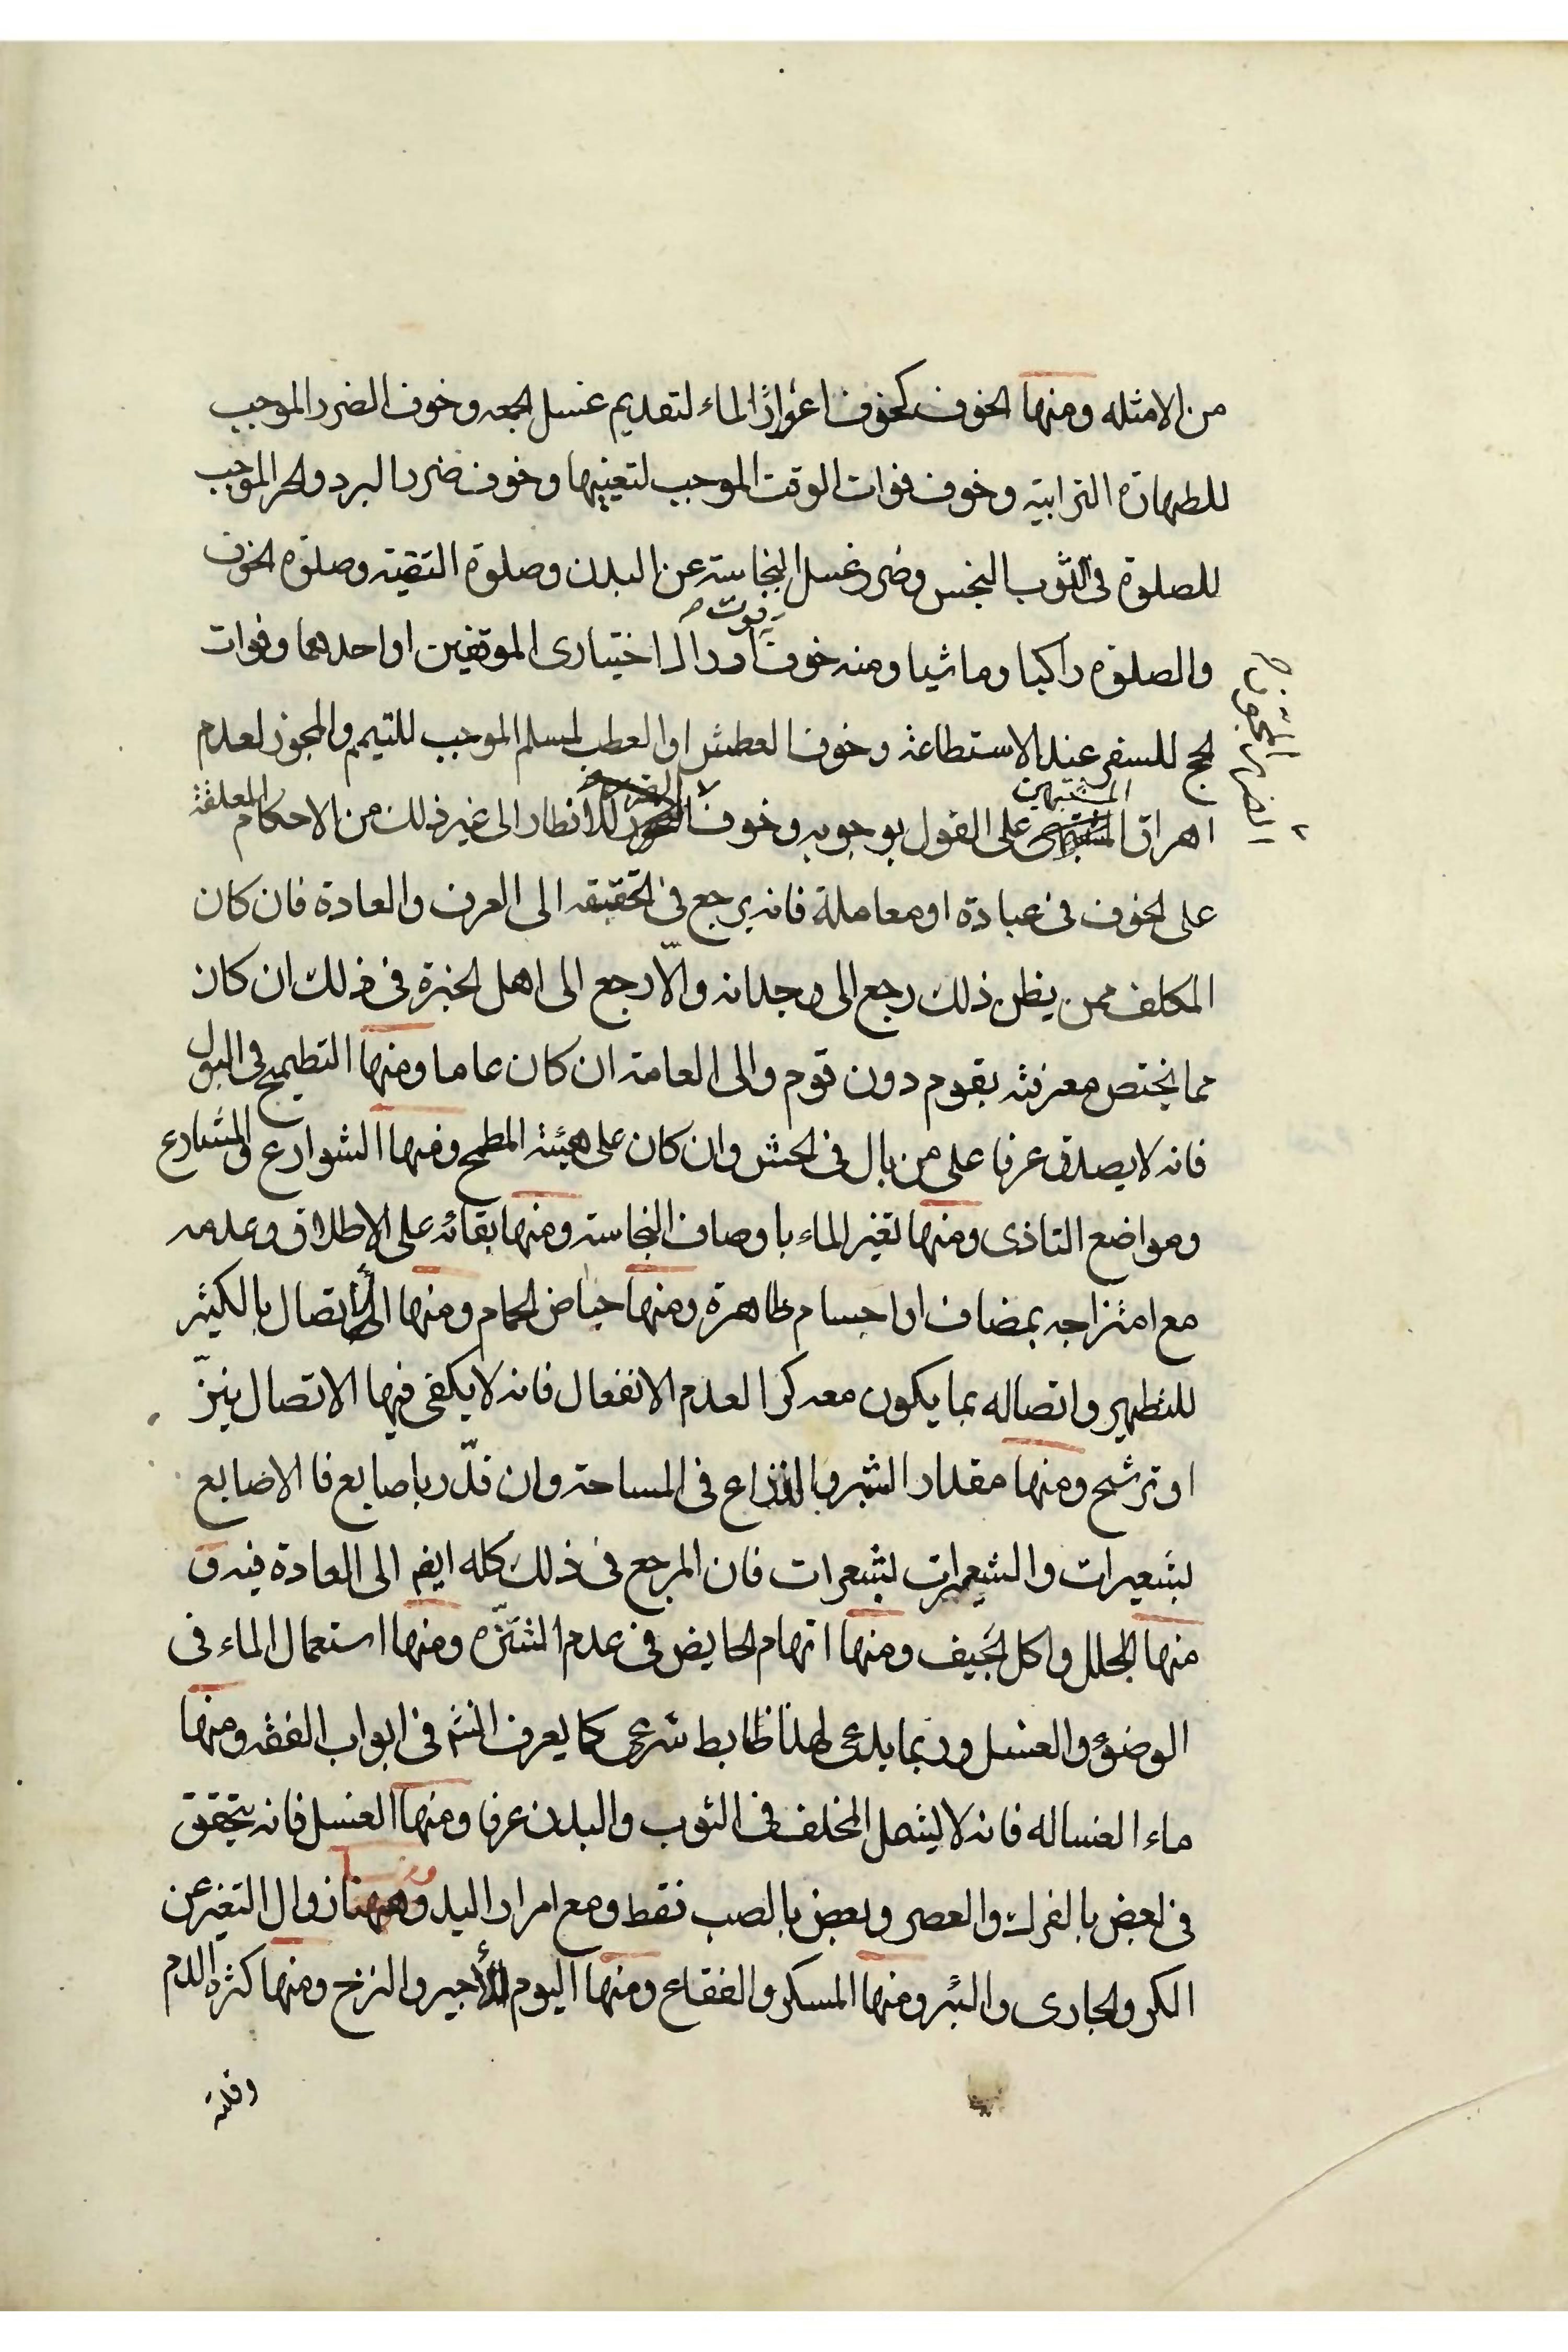 من الامثله ومنها الخوف كخوف اعواز الماء لتقديم غسل الجمعه وخوف الضرر الموجب
للطهارة الترابيه وخوف فوات الوقت الموجب لتعينها وخوف ضرر البرد والحر الموجب
للصلوة فى الثوب النجس وضرر غسل النجاسة عن البدن وصلوة التقيه وصلوة الخوف
فوت
والصلوة راكبا وماشيا ومنه خوف اختيارى الموقفين او احدهما وفوات
الحج للسفر عند الاستطاعة وخوف العطش او العطب لمسلم الموجب للتيمم والمجوز لعدم
اهراق المشتبهين على القول بوجوبه وخوف للافطار الى غير ذلك من الاحكام المعلقة
على الخوف فى عبادة او معاملة فانه يرجع فى تحقيقه الى العرف والعادة فان كان
المكلف ممن يظن ذلك رجع الى وجدانه والّا رجع الى اهل الخبرة فى ذلك ان كان
مما يختص معرفته بقوم دون قوم والى العامة ان كان عاما ومنها التطميح فى البول
فانه لا يصدق عرفا على من بال فى الحش وان كان على هيئة المطمح ومنها الشوارع والمشارع
ومواضع التاذى ومنها تغير الماء باوصاف النجاسة ومنها بقائه على الاطلاق وعدمه
مع امتزاجه بمضاف او اجسام طاهرة ومنها حياض الحمام ومنها الاتصال بالكثير
للتطهير واتصاله بما يكون معه كرا لعدم الانفعال فانه لا يكفى فيها الاتصال بنزّ
او ترشح ومنها مقدار الشبر وبالذراع فى المساحة وان قدّر باصابع فا الاصابع
بشعيرات والشعيرات بشعرات فان المرجع فى ذلك كله ايضا الى العادة فيه و
منها الجلل واكل الجيف ومنها اتهام الحايض فى عدم التنزّه ومنها استعمال الماء فى
الوضوء والغسل وربما يدعى لهذا ظابط شرعى كما يعرف انثم فى ابواب الفقه ومنها
ماء الغساله فانه لا يشمل المخلف فى الثوب والبدن عرفا ومنها الغسل فانه يتحقق
فى بعض بالفرك والعصر وبعض بالصب فقط ومع امرار اليد ومنها زوال التغير عن
الكر والجارى والبئر ومنها المسكر والفقاع ومنها اليوم للأجير والنزح ومنها كثرة الدم
وقلته